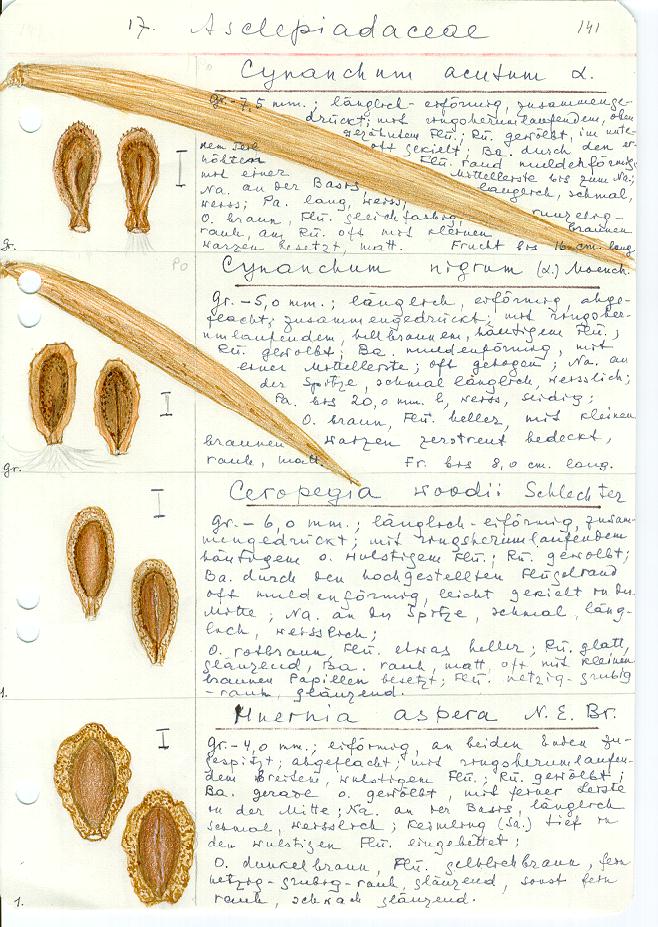 17. Asclepiadaceae 141
Cynanchum acutum L.
Gr.-7,5 mm.; länglich-eiförmig, zusammenge-
drückt; mit ringsherumlaufendem, oben
gezähntem Flü.; Rü. gewölbt, im unte-
ren Teile oft gekielt; Ba. durch den er-
höhten Flü.rand muldenförmig
mit einer Mittelleiste bis zum Na.;
Na. an der Basis, länglich, schmal,
weiss; Pa. lang, weiss;
O. braun, Flü. gleichfarbig, runzelig-
rauh, am Rü. oft mit kleinen braunen
Warzen besetzt, matt. Frucht bis 16 cm. lang
gr.
Po
Cynanchum nigrum (L.) Moench.
Gr.-5,0 mm.; länglich, eiförmig, abge-
flacht, zusammengedrückt; mit ringsher-
umlaufendem, hellbraunem, häutigem Flü.;
Rü. gewölbt; Ba. muldenförmig, mit
einer Mittelleiste; oft gebogen; Na. an
der Spitze, schmal länglich, weisslich;
Pa. bis 20,0 mm. l., weiss, seidig;
O. braun, Flü. heller, mit kleinen
braunen Warzen zerstreut bedeckt,
rauh, matt. Fr. bis 8,0 cm. lang.
gr.
Ceropegia woodii Schlechter
Gr.-6,0 mm.; länglich-eiförmig, zusam-
mengedrückt; mit ringsherumlaufendem
häutigem o. wulstigem Flü.; Rü. gewölbt;
Ba. durch den hochgestellten Flügelrand
oft muldenförmig, leicht gekielt in der
Mitte; Na. an der Spitze, schmal, läng-
lich, weisslich;
O. rotbraun, Flü. etwas heller; Rü. glatt,
glänzend, Ba. rauh, matt, oft mit kleinen
braunen Papillen besetzt; Flü. netzig-grubig
-rauh, glänzend.
1.
Huernia aspera N. E. Br.
Gr.-4,0 mm.; eiförmig, an beiden Enden zu-
gespitzt; abgeflacht; mit ringsherumlaufen-
dem breitem, wulstigem Flü.; Rü. gewölbt;
Ba. gerade o. gewölbt, mit feiner Leiste
in der Mitte; Na. an der Basis, länglich
schmal, weisslich; Keimling (Sa.) tief in
den wulstigen Flü. eingebettet;
O. dunkelbraun, Flü. gelblichbraun, fein
netzig-grubig-rauh, glänzend, sonst fein
rauh, schwach glänzend.
1.